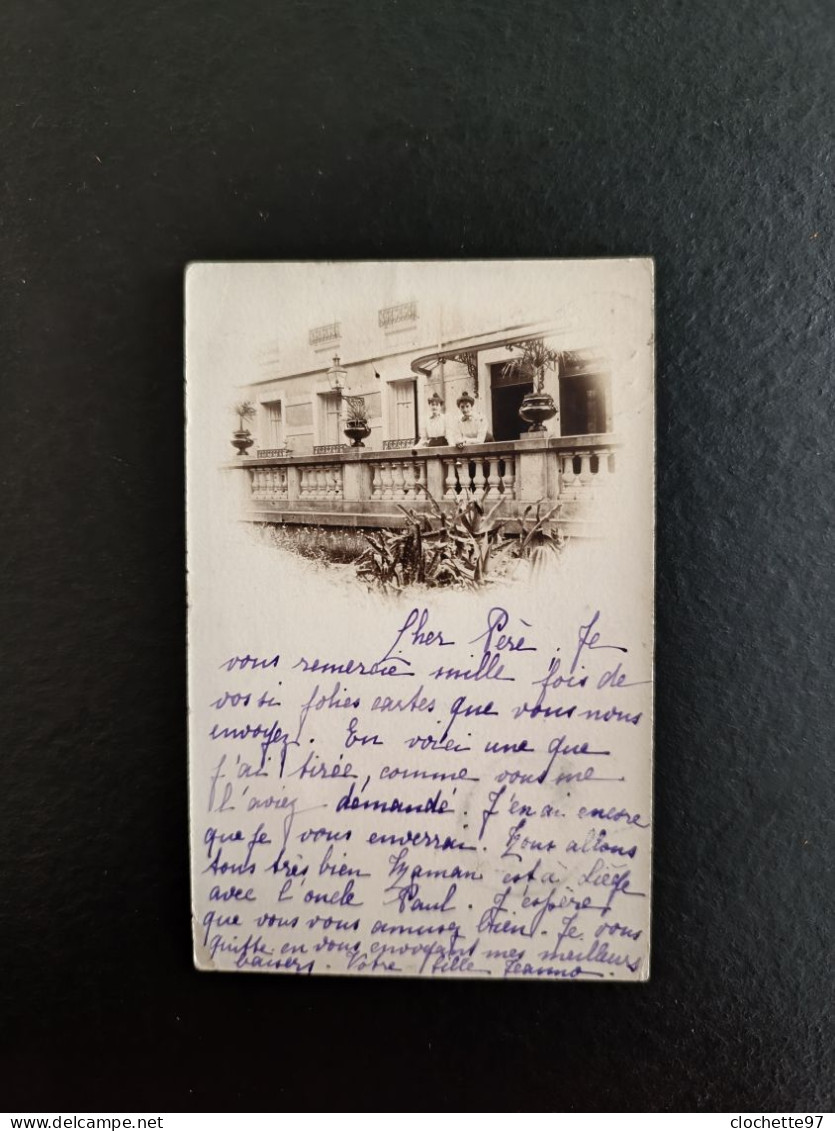 Cher Père. Je
vous remercie mille fois de
vos si jolies cartes que vous nous
envoyez. En voici une que
j'ai tirée, comme vous me
l'aviez démandé. J'en ai encore
que je vous enverrai. Nous allons
tous très bien Maman est à Liège
avec l'oncle Paul. J'espère
que vous vous amusez bien. Je vous
quitte en vous envoyant mes meilleurs
baisers. Votre fille Jeanne.
delcampe.net
clochette97